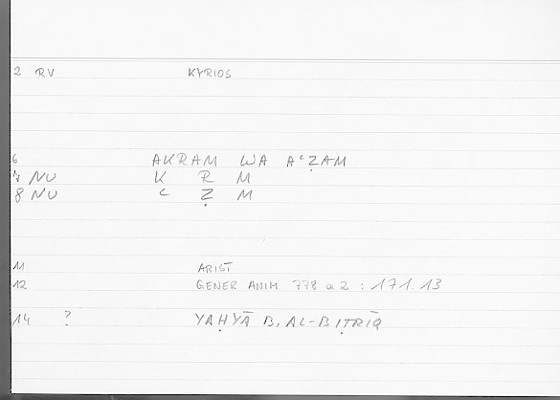 2 RV KYRIOS
6 AKRAM WA AʿẒAM
7 NU K R M
8 NU ʿ Ẓ M
11 ARIST
12 GENER ANIM 778 a 2 : 171.13
14 ? YAḤYĀ B. AL-BIṬRĪQ